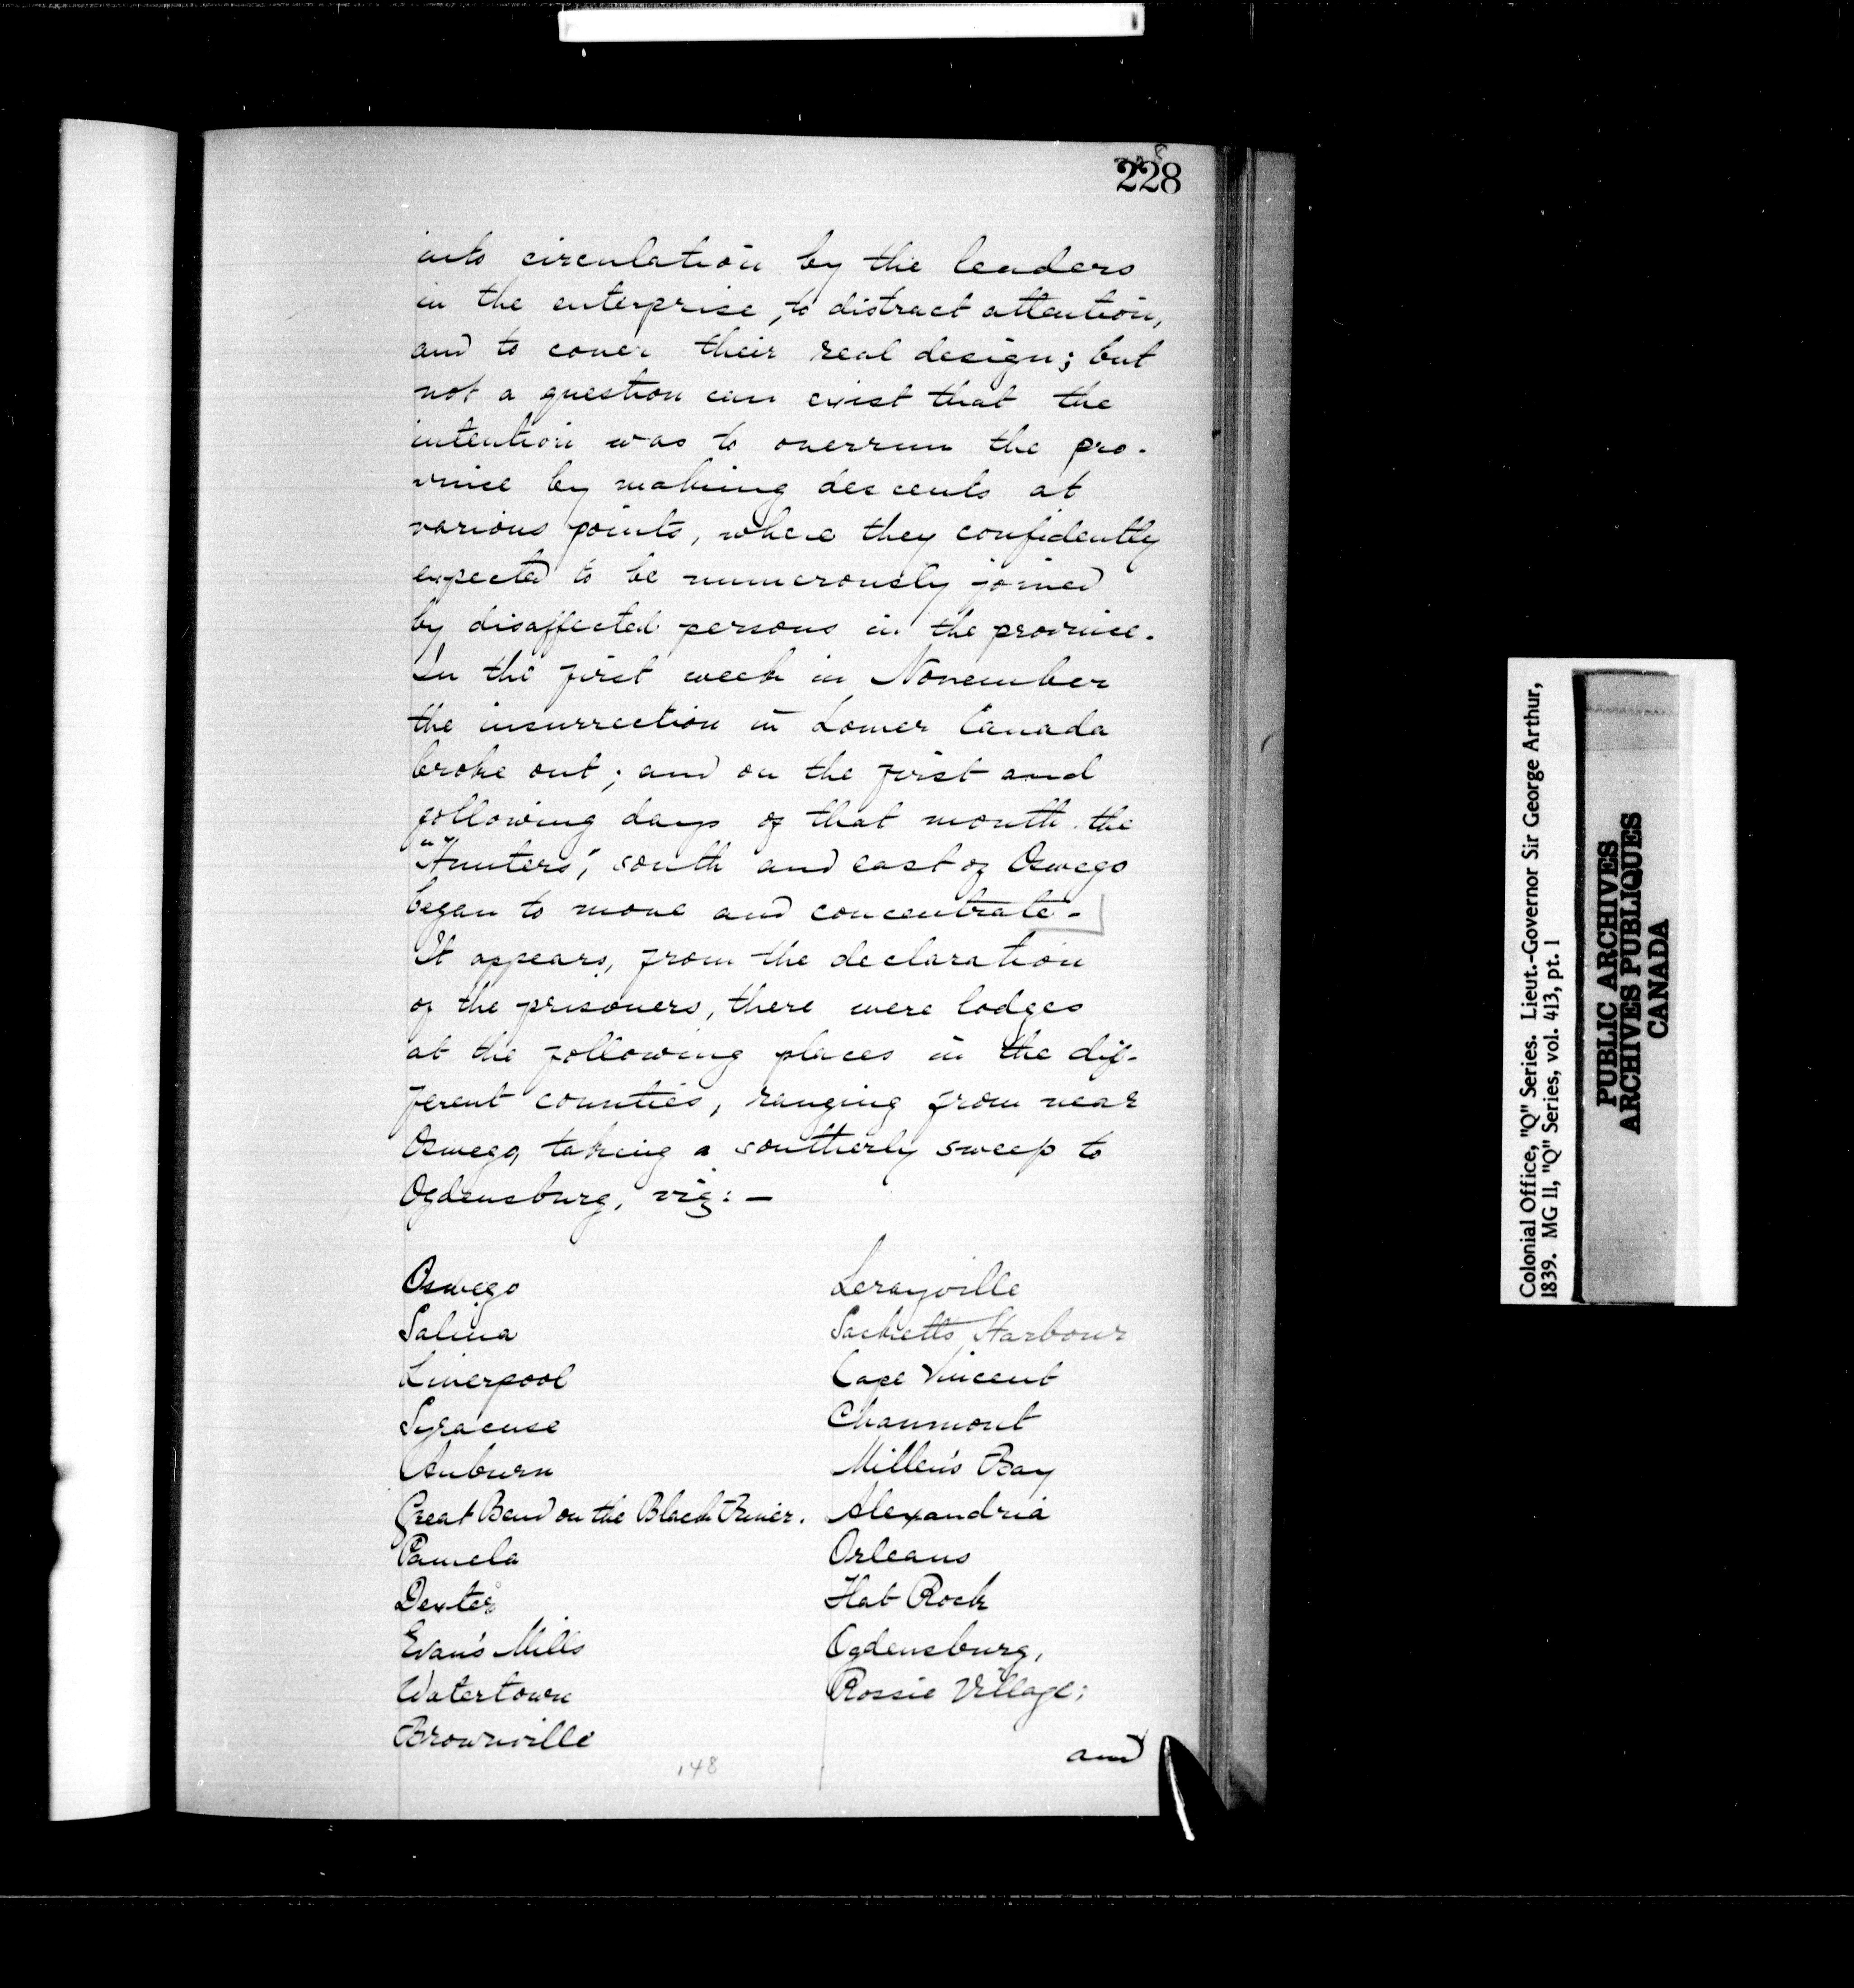 228
into circulation by the leaders
in the enterprise, to distract attention,
and to cover their real design; but
not a question can exist that the
intention was to overrun the pro-
vince by making descents at
various points, where they confidently
expected to be numerously joined
by disaffected persons in the province.
In the first week in November
the insurrection in Lower Canada
broke out; and on the first and
following days of that month the
"Hunters", south and east of Oswego
began to move and concentrate.
It appears, from the declaration
of the prisoners, there were lodges
at the following places in the dif-
ferent counties, ranging from near
Oswego, taking a southerly sweep to
Ogdensburg, viz: —
Oswego
Salina
Liverpool
Syracuse
Auburn
Great Bend on the Black River.
Pamela
Dexter
Evan's Mills
Watertown
Brownville
Lerayville
Sacketts Harbour
Cape Vincent
Chaumont
Millen's Bay
Alexandria
Orleans
Flat Rock
Ogdensburg,
Rossie Village;
and
148
Colonial Office, "Q" Series. Lieut.-Governor Sir George Arthur,
1839. MG 11, "Q" Series, vol. 413, pt. 1
PUBLIC ARCHIVES
ARCHIVES PUBLIQUES
CANADA